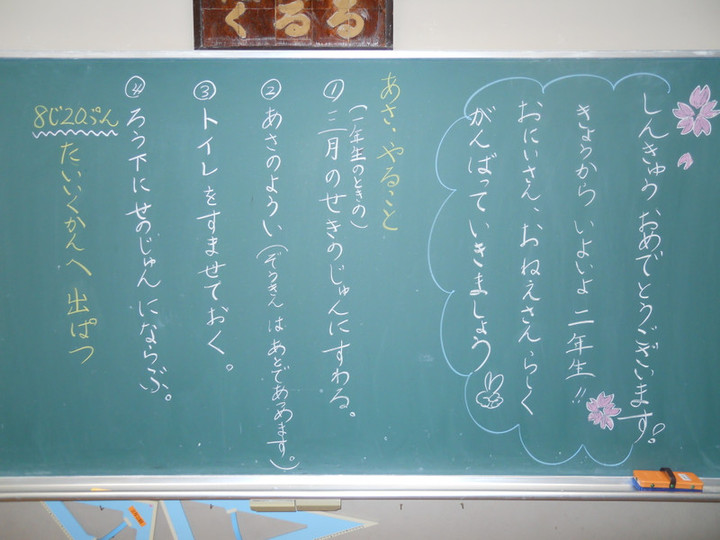 くるる
しんきゅう おめでとうございます。
きょうから いよいよ 二年生!!
おにいさん、おねえさんらしく
がんばって いきましょう
あさ、やること
① 三月のせきのじゅんにすわる。
(一年生のときの)
② あさのようい(ぞうきんはあとであつめます。)
③ トイレをすませておく。
④ ろう下にせのじゅんにならぶ。
8じ20ぷん
たいいくかんへ 出ぱつ